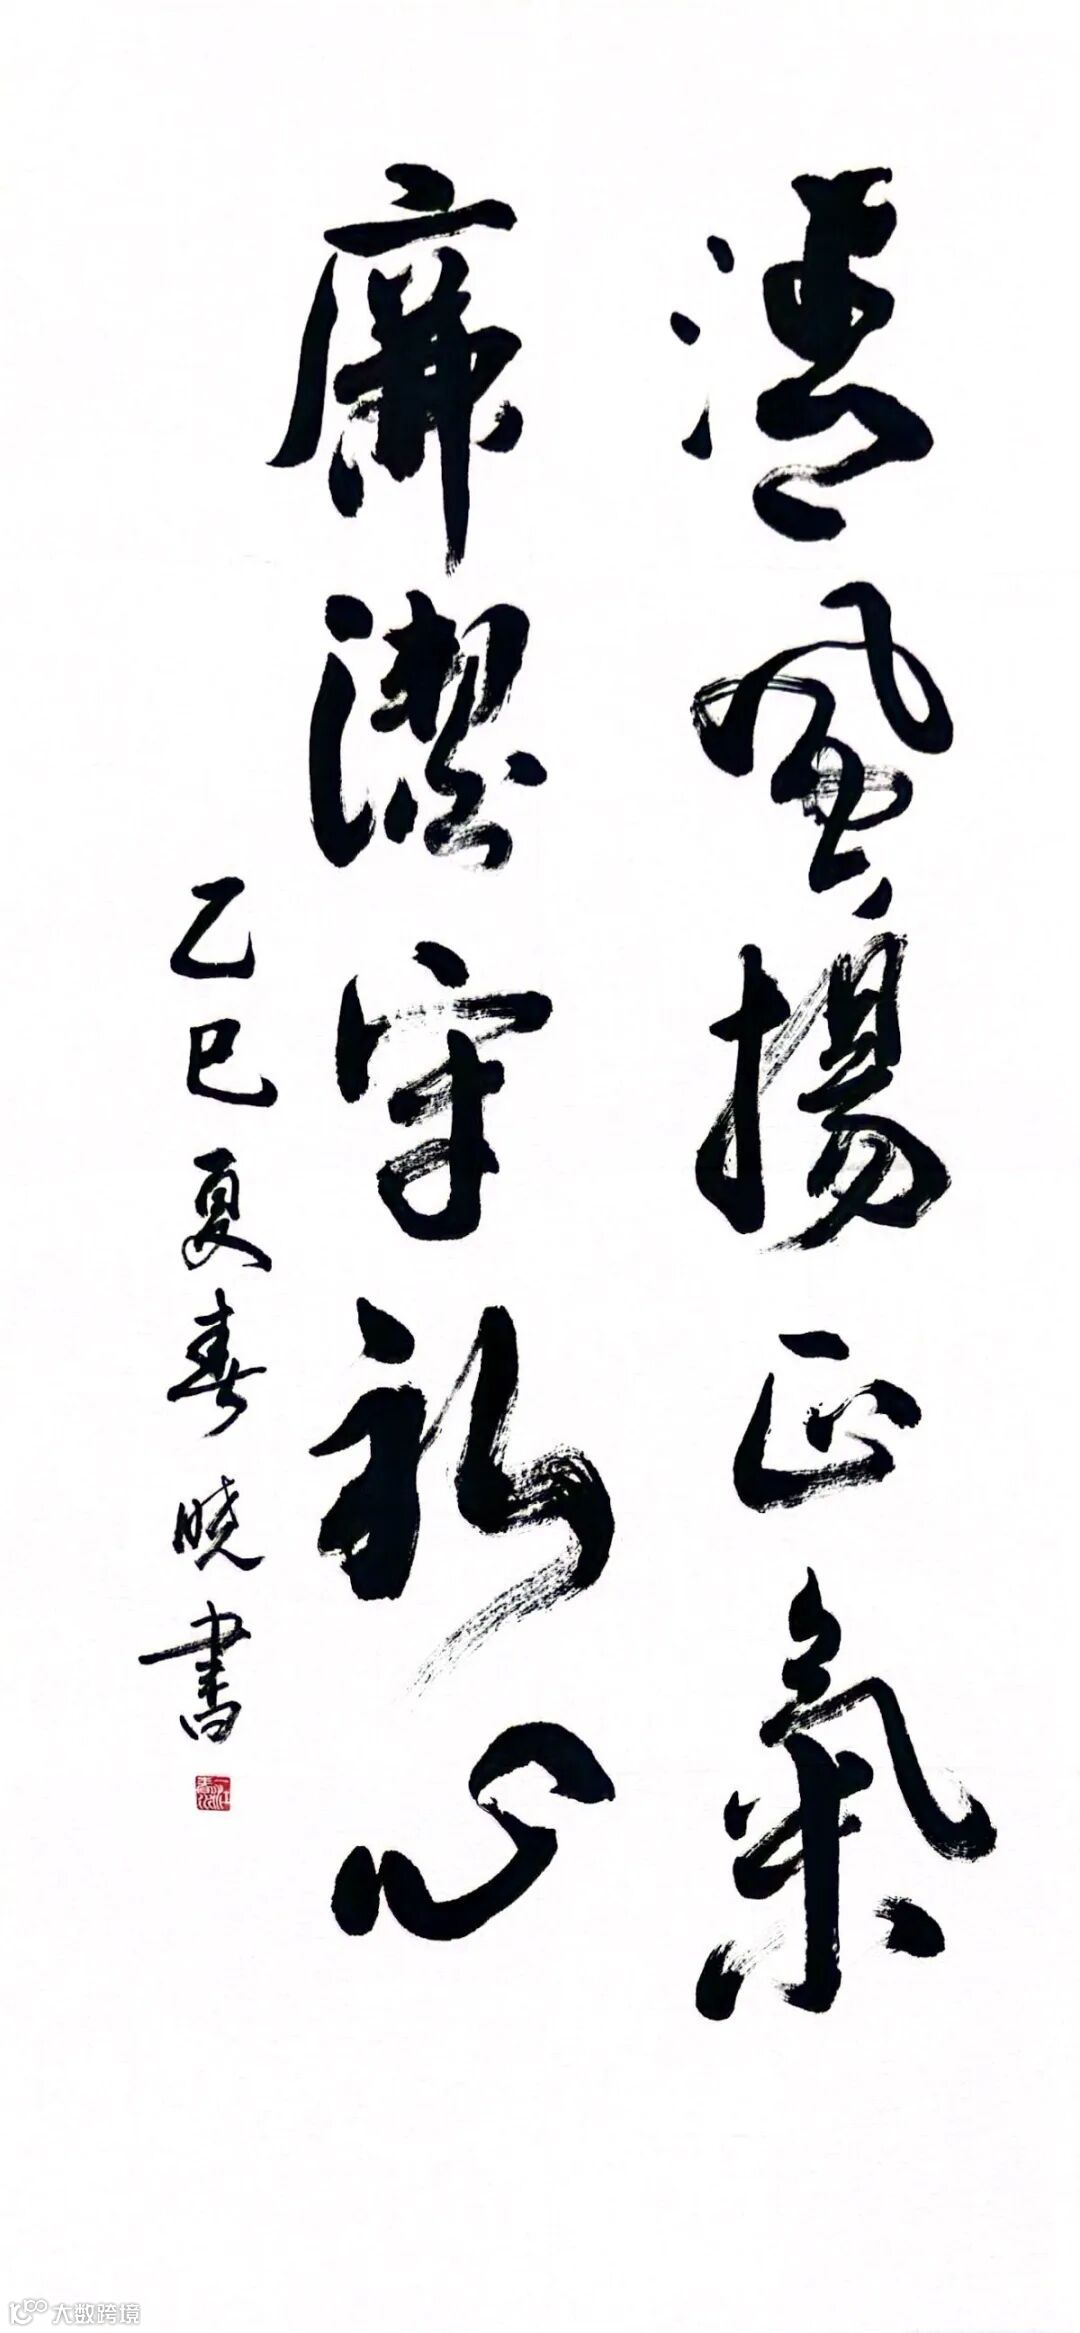 清風揚正氣
廉潔守初心
乙巳夏春曉書
大数跨境